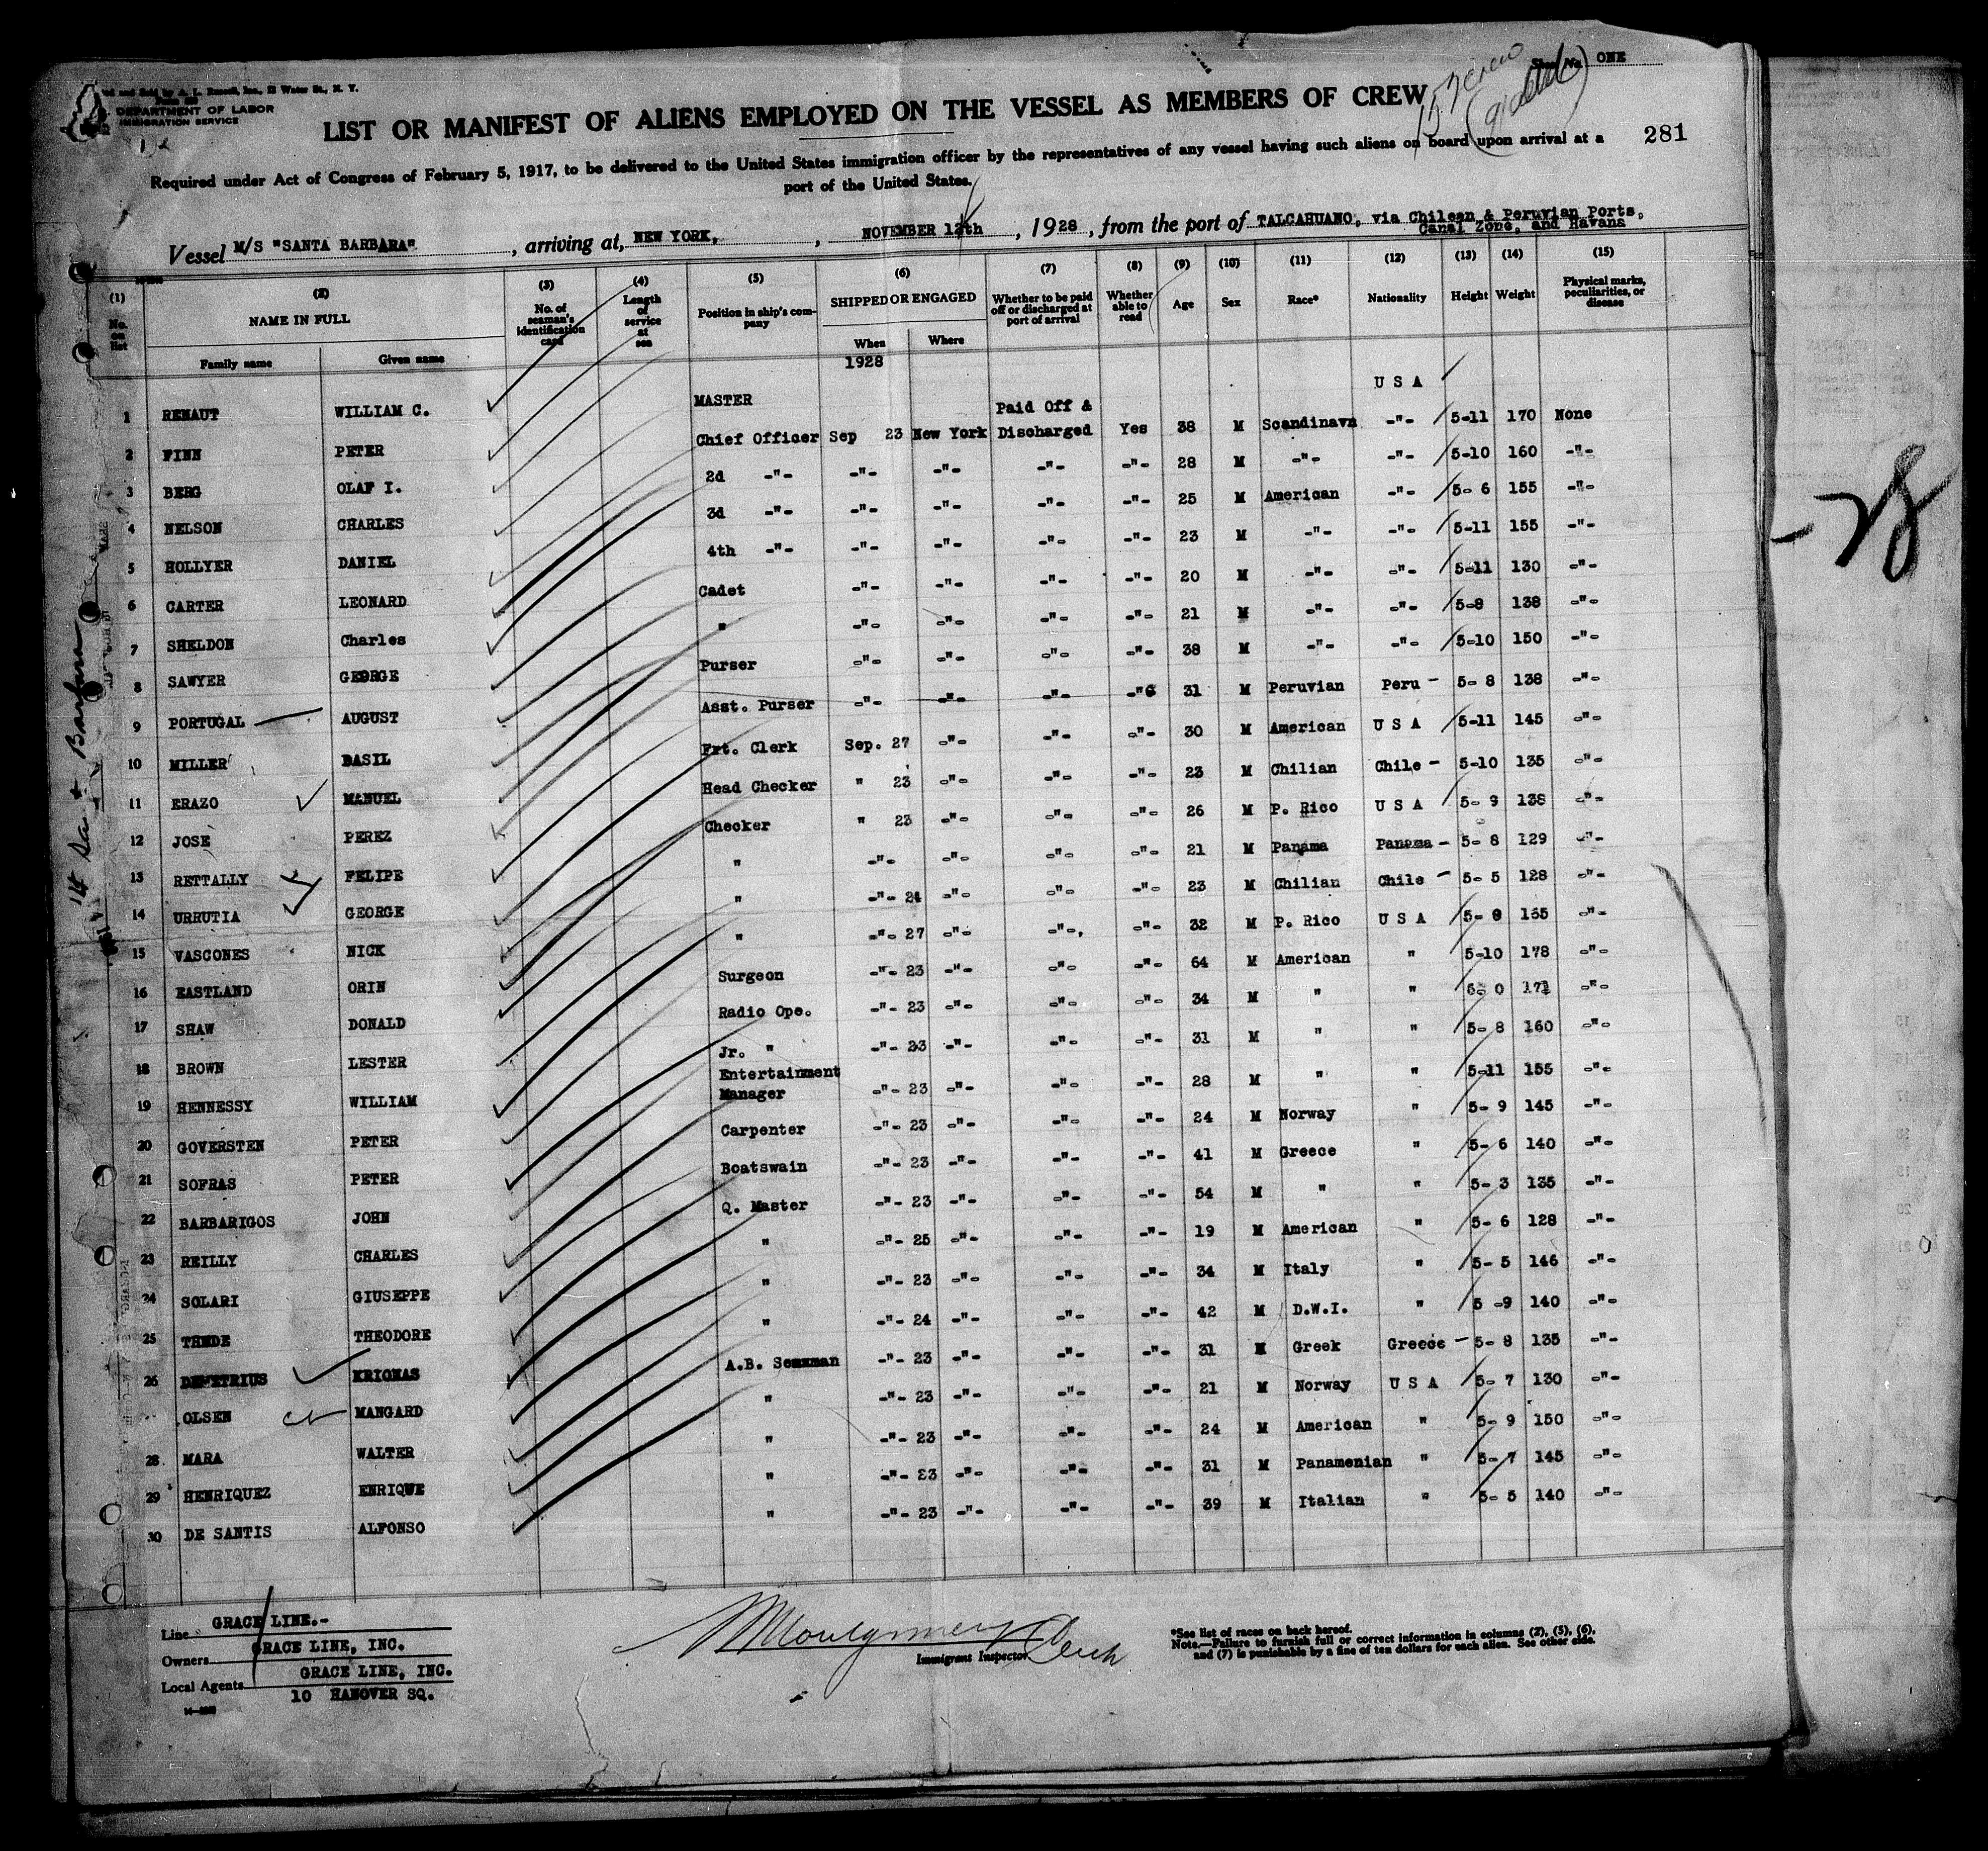 Sheet No. ONE
DEPARTMENT OF LABOR
IMMIGRATION SERVICE
LIST OR MANIFEST OF ALIENS EMPLOYED ON THE VESSEL AS MEMBERS OF CREW
281
Required under Act of Congress of February 5, 1917, to be delivered to the United States immigration officer by the representatives of any vessel having such aliens on board upon arrival at a
port of the United States.
Vessel M/S "SANTA BARBARA", arriving at, NEW YORK, , NOVEMBER 12th, 1928, from the port of TALCAHUANO, via Chilean & Peruvian Ports,
Canal Zone, and Havana
(1) No. on list (2) NAME IN FULL Family name Given name (3) No. of seaman's identification card (4) Length of service at sea (5) Position in ship's company (6) SHIPPED OR ENGAGED When Where (7) Whether to be paid off or discharged at port of arrival (8) Whether able to read (9) Age (10) Sex (11) Race* (12) Nationality (13) Height (14) Weight (15) Physical marks, peculiarities, or disease
1928
1 RENAUT WILLIAM C. MASTER U S A
2 FINN PETER Chief Officer Sep 23 New York Paid Off & Discharged Yes 38 M Scandinavn -"- 5-11 170 None
3 BERG OLAF I. 2d -"- -"- -"- -"- -"- 28 M -"- -"- 5-10 160 -"-
4 NELSON CHARLES 3d -"- -"- -"- -"- -"- 25 M American -"- 5- 6 155 -"-
5 HOLLYER DANIEL 4th -"- -"- -"- -"- -"- 23 M -"- -"- 5-11 155 -"-
6 CARTER LEONARD Cadet -"- -"- -"- -"- 20 M -"- -"- 5-11 130 -"-
7 SHELDON Charles " -"- -"- -"- -"- 21 M -"- -"- 5-8 138 -"-
8 SAWYER GEORGE Purser -"- -"- -"- -"- 38 M -"- -"- 5-10 150 -"-
9 PORTUGAL AUGUST Asst. Purser -"- -"- -"- -"- 31 M Peruvian Peru 5- 8 138 -"-
10 MILLER BASIL Frt. Clerk Sep. 27 -"- -"- -"- 30 M American U S A 5-11 145 -"-
11 ERAZO MANUEL Head Checker " 23 -"- -"- -"- 23 M Chilian Chile 5-10 135 -"-
12 JOSE PEREZ Checker " 23 -"- -"- -"- 26 M P. Rico U S A 5- 9 138 -"-
13 RETTALLY FELIPE " -"- -"- -"- -"- 21 M Panama Panama 5- 8 129 -"-
14 URRUTIA GEORGE " -"- 24 -"- -"- -"- 23 M Chilian Chile 5- 5 128 -"-
15 VASCONES NICK " -"- 27 -"- -"- -"- 32 M P. Rico U S A 5- 8 165 -"-
16 EASTLAND ORIN Surgeon -"- 23 -"- -"- -"- 64 M American " 5-10 178 -"-
17 SHAW DONALD Radio Ope. -"- 23 -"- -"- -"- 34 M " " 6- 0 171 -"-
18 BROWN LESTER Jr. " -"- 23 -"- -"- -"- 31 M " " 5- 8 160 -"-
19 HENNESSY WILLIAM Entertainment Manager -"- 23 -"- -"- -"- 28 M " " 5-11 155 -"-
20 GOVERSTEN PETER Carpenter -"- 23 -"- -"- -"- 24 M Norway " 5- 9 145 -"-
21 SOFRAS PETER Boatswain -"- 23 -"- -"- -"- 41 M Greece " 5- 6 140 -"-
22 BARBARIGOS JOHN Q. Master -"- 23 -"- -"- -"- 54 M " " 5- 3 135 -"-
23 REILLY CHARLES " -"- 25 -"- -"- -"- 19 M American " 5- 6 128 -"-
24 SOLARI GIUSEPPE " -"- 23 -"- -"- -"- 34 M Italy " 5- 5 146 -"-
25 THEDE THEODORE " -"- 24 -"- -"- -"- 42 M D.W.I. " 5 -9 140 -"-
26 DEMETRIUS KRIONAS A.B. Seaman -"- 23 -"- -"- -"- 31 M Greek Greece 5- 8 135 -"-
OLSEN MANGARD " -"- 23 -"- -"- -"- 21 M Norway U S A 5- 7 130 -"-
28 MARA WALTER " -"- 23 -"- -"- -"- 24 M American " 5- 9 150 -"-
29 HENRIQUEZ ENRIQUE " -"- 23 -"- -"- -"- 31 M Panamenian " 5- 7 145 -"-
30 DE SANTIS ALFONSO " -"- 23 -"- -"- -"- 39 M Italian " 5- 5 140 -"-
Line GRACE LINE.-
Owners GRACE LINE, INC.
Local Agents GRACE LINE, INC.
10 HANOVER SQ.
Immigrant Inspector
*See list of races on back hereof.
Note.—Failure to furnish full or correct information in columns (2), (5), (6),
and (7) is punishable by a fine of ten dollars for each alien. See other side.